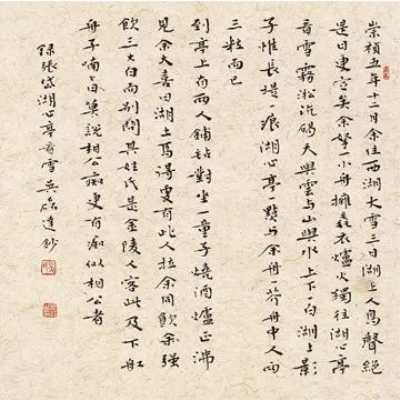 崇禎五年十二月余住西湖大雪三日湖上人鳥聲絕
是日更定矣余拏一小舟擁毳衣爐火獨往湖心亭
看雪霧淞沆碭天與雲與山與水上下一白湖上影
子惟長堤一痕湖心亭一點與余舟一芥舟中人兩
三粒而已
到亭上有兩人鋪氈對坐一童子燒酒爐正沸
見余大喜曰湖上焉得更有此人拉余同飲余強
飲三大白而別問其姓氏是金陵人客此及下船
舟子喃喃曰莫說相公癡更有癡似相公者
錄張岱湖心亭看雪